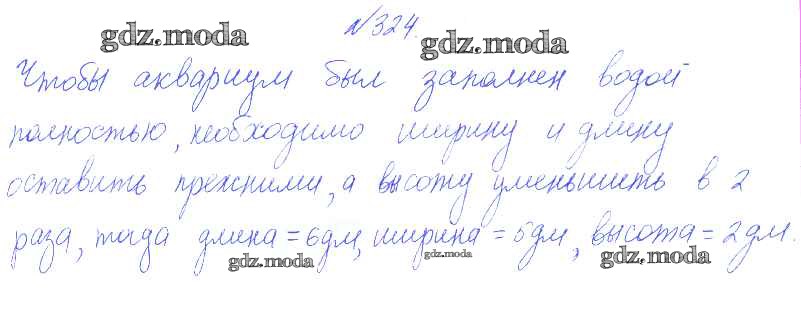 №324.
gdz.moda
gdz.moda
Чтобы аквариум был заполнен водой
полностью, необходимо ширину и длину
оставить прежними, а высоту уменьшить в 2
раза, тогда длина = 6дм, ширина = 5дм, высота = 2дм.
gdz.moda
gdz.moda
gdz.moda